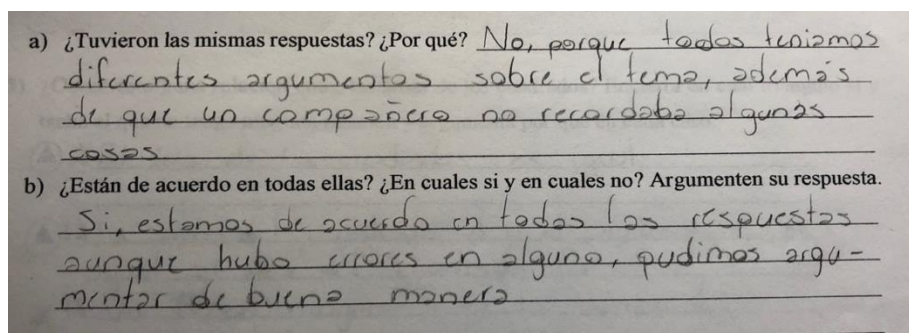 a) ¿Tuvieron las mismas respuestas? ¿Por qué? No, porque todos teniamos
diferentes argumentos sobre el tema, además
de que un compañero no recordaba algunas
cosas
b) ¿Están de acuerdo en todas ellas? ¿En cuales si y en cuales no? Argumenten su respuesta.
Si, estamos de acuerdo en todas las respuestas
aunque hubo errores en alguna, pudimos argu-
mentar de buena manera